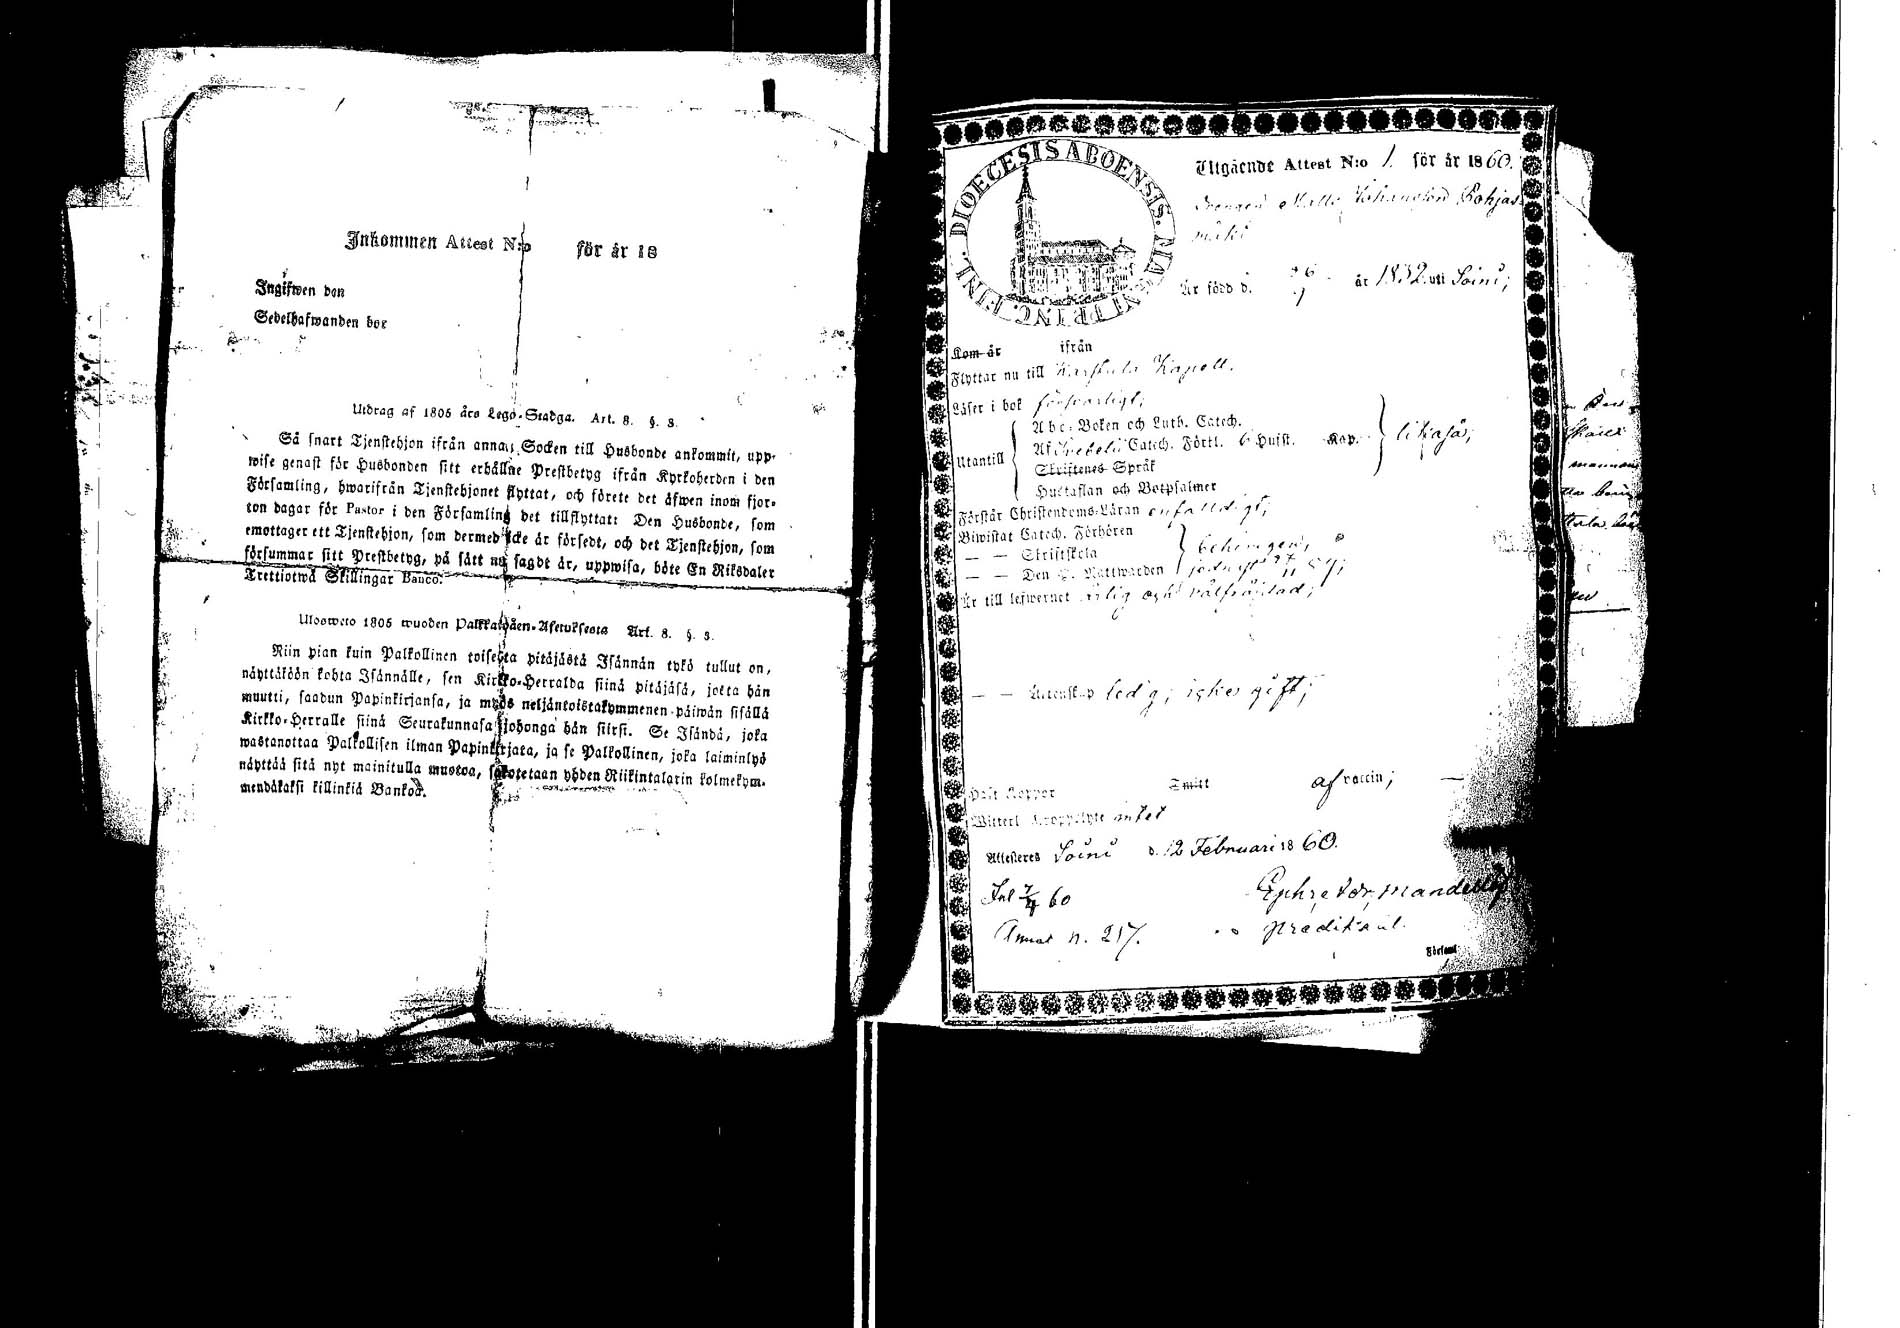 Inkommen Attest N:o för år 18
Ingifwen den
Sedelhafwanden bor
Utdrag af 1805 års Lego-Stadga. Art. 8. §. 3.
Så snart Tjenstehjon ifrån annan Socken till Husbonde ankommit, upp-
wise genast för Husbonden sitt erhållne Prestbetyg ifrån Kyrkoherden i den
Församling, hwarifrån Tjenstehjonet flyttat, och förete det äfwen inom fjor-
ton dagar för Pastor i den Församling det tillflyttat: Den Husbonde, som
emottager ett Tjenstehjon, som dermed icke är försedt, och det Tjenstehjon, som
försummar sitt Prestbetyg, på sätt nu sagdt är, uppwisa, böte En Riksdaler
Trettiotwå Skillingar Banco.
Ulosweto 1805 wuoden Palkkawäen-Asetuksesta Art. 8. §. 3.
Niin pian kuin Palkollinen toisesta pitäjästä Isännän tykö tullut on,
näyttäköön kohta Isännälle, sen Kirkko-Herralda siinä pitäjäsä, josta hän
muutti, saadun Papinkirjansa, ja myös neljäntoistakymmenen päiwän sisällä
Kirkko-Herralle siinä Seurakunnasa johonga hän siirsi. Se Isändä, joka
wastanottaa Palkollisen ilman Papinkirjata, ja se Palkollinen, joka laiminlyö
näyttää sitä nyt mainitulla muotoa, sakotetaan yhden Riikintalarin kolmekym-
mendäkaksi killinkiä Bankoa.
DIOECESIS ABOENSIS. MAGNI PRINC. FINL.
Utgående Attest N:o 1. för år 1860.
Drengen Matts Johansson Pohjas-
mäki
Är född d. 26 år 1832 uti Soini;
Kom år ifrån
Flyttar nu till Karstula Kapell.
Läser i bok försvarligt;
Abc-Boken och Luth. Catech.
Utantill Af Svebelii Catech. Förkl. 6 Hufst. Kap. likaså;
Skriftenes Språk
Hustaflan och Botpsalmer
Förstår Christendoms-Läran enfaldigt;
Biwistat Catech. Förhören
— — Skriftskola behörigen;
— — Den H. Nattwarden
Är till lefwernet ärlig och välfräjdad;
— — Äktenskap ledig; icke gift;
Haft Koppor Smitt af vaccin; —
Witterl. Kroppslyte intet
Attesteras Soini d. 12 Februari 1860.
Inl 7/4 60
Annot n. 217.
predikant.
Församl